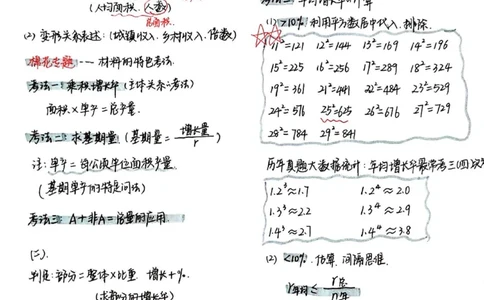 (人均面积、人数)
总面积.
(2) 实际关系表述: (城镇收入、乡村收入、倍数)
棉花专题 --- 材料的特色考法.
考法一: 乘积增长率 (主体关系考法)
面积×单产=总产量.
考法二: 求基期量 (基期量 = 增长量/r )
注: 单产=每公顷单位面积产量.
(基期单产的特定问法)
考法三: A+非A=总量的应用.
(二).
判定: 部分=整体×比重 增长+%.
(求部分的增长率)
(1) >10% 利用平方数居中代入, 排除.
11²=121 12²=144 13²=169 14²=196
15²=225 16²=256 17²=289 18²=324
19²=361 21²=441 22²=484 23²=529
24²=576 25²=625 26²=676 27²=729
28²=784 29²=841
历年真题大数据统计: 年均增长率最常考三(四)次
1.2³≈1.7 1.2⁴≈2.0
1.3³≈2.2 1.3⁴≈2.9
1.4³≈2.7 1.4⁴≈3.8
(2) <10%. 估算. 间隔思维.
r年均 ≤ r总/n年